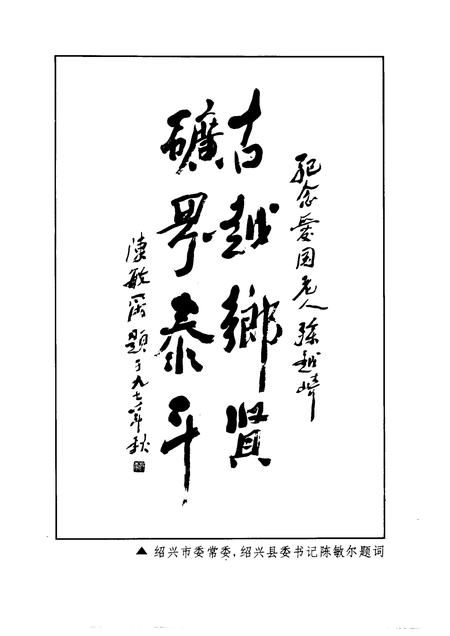 纪念爱国老人孙越崎
古越鄉贤
礦界泰斗
陈敏尔题于九七年秋
▲ 绍兴市委常委,绍兴县委书记陈敏尔题词